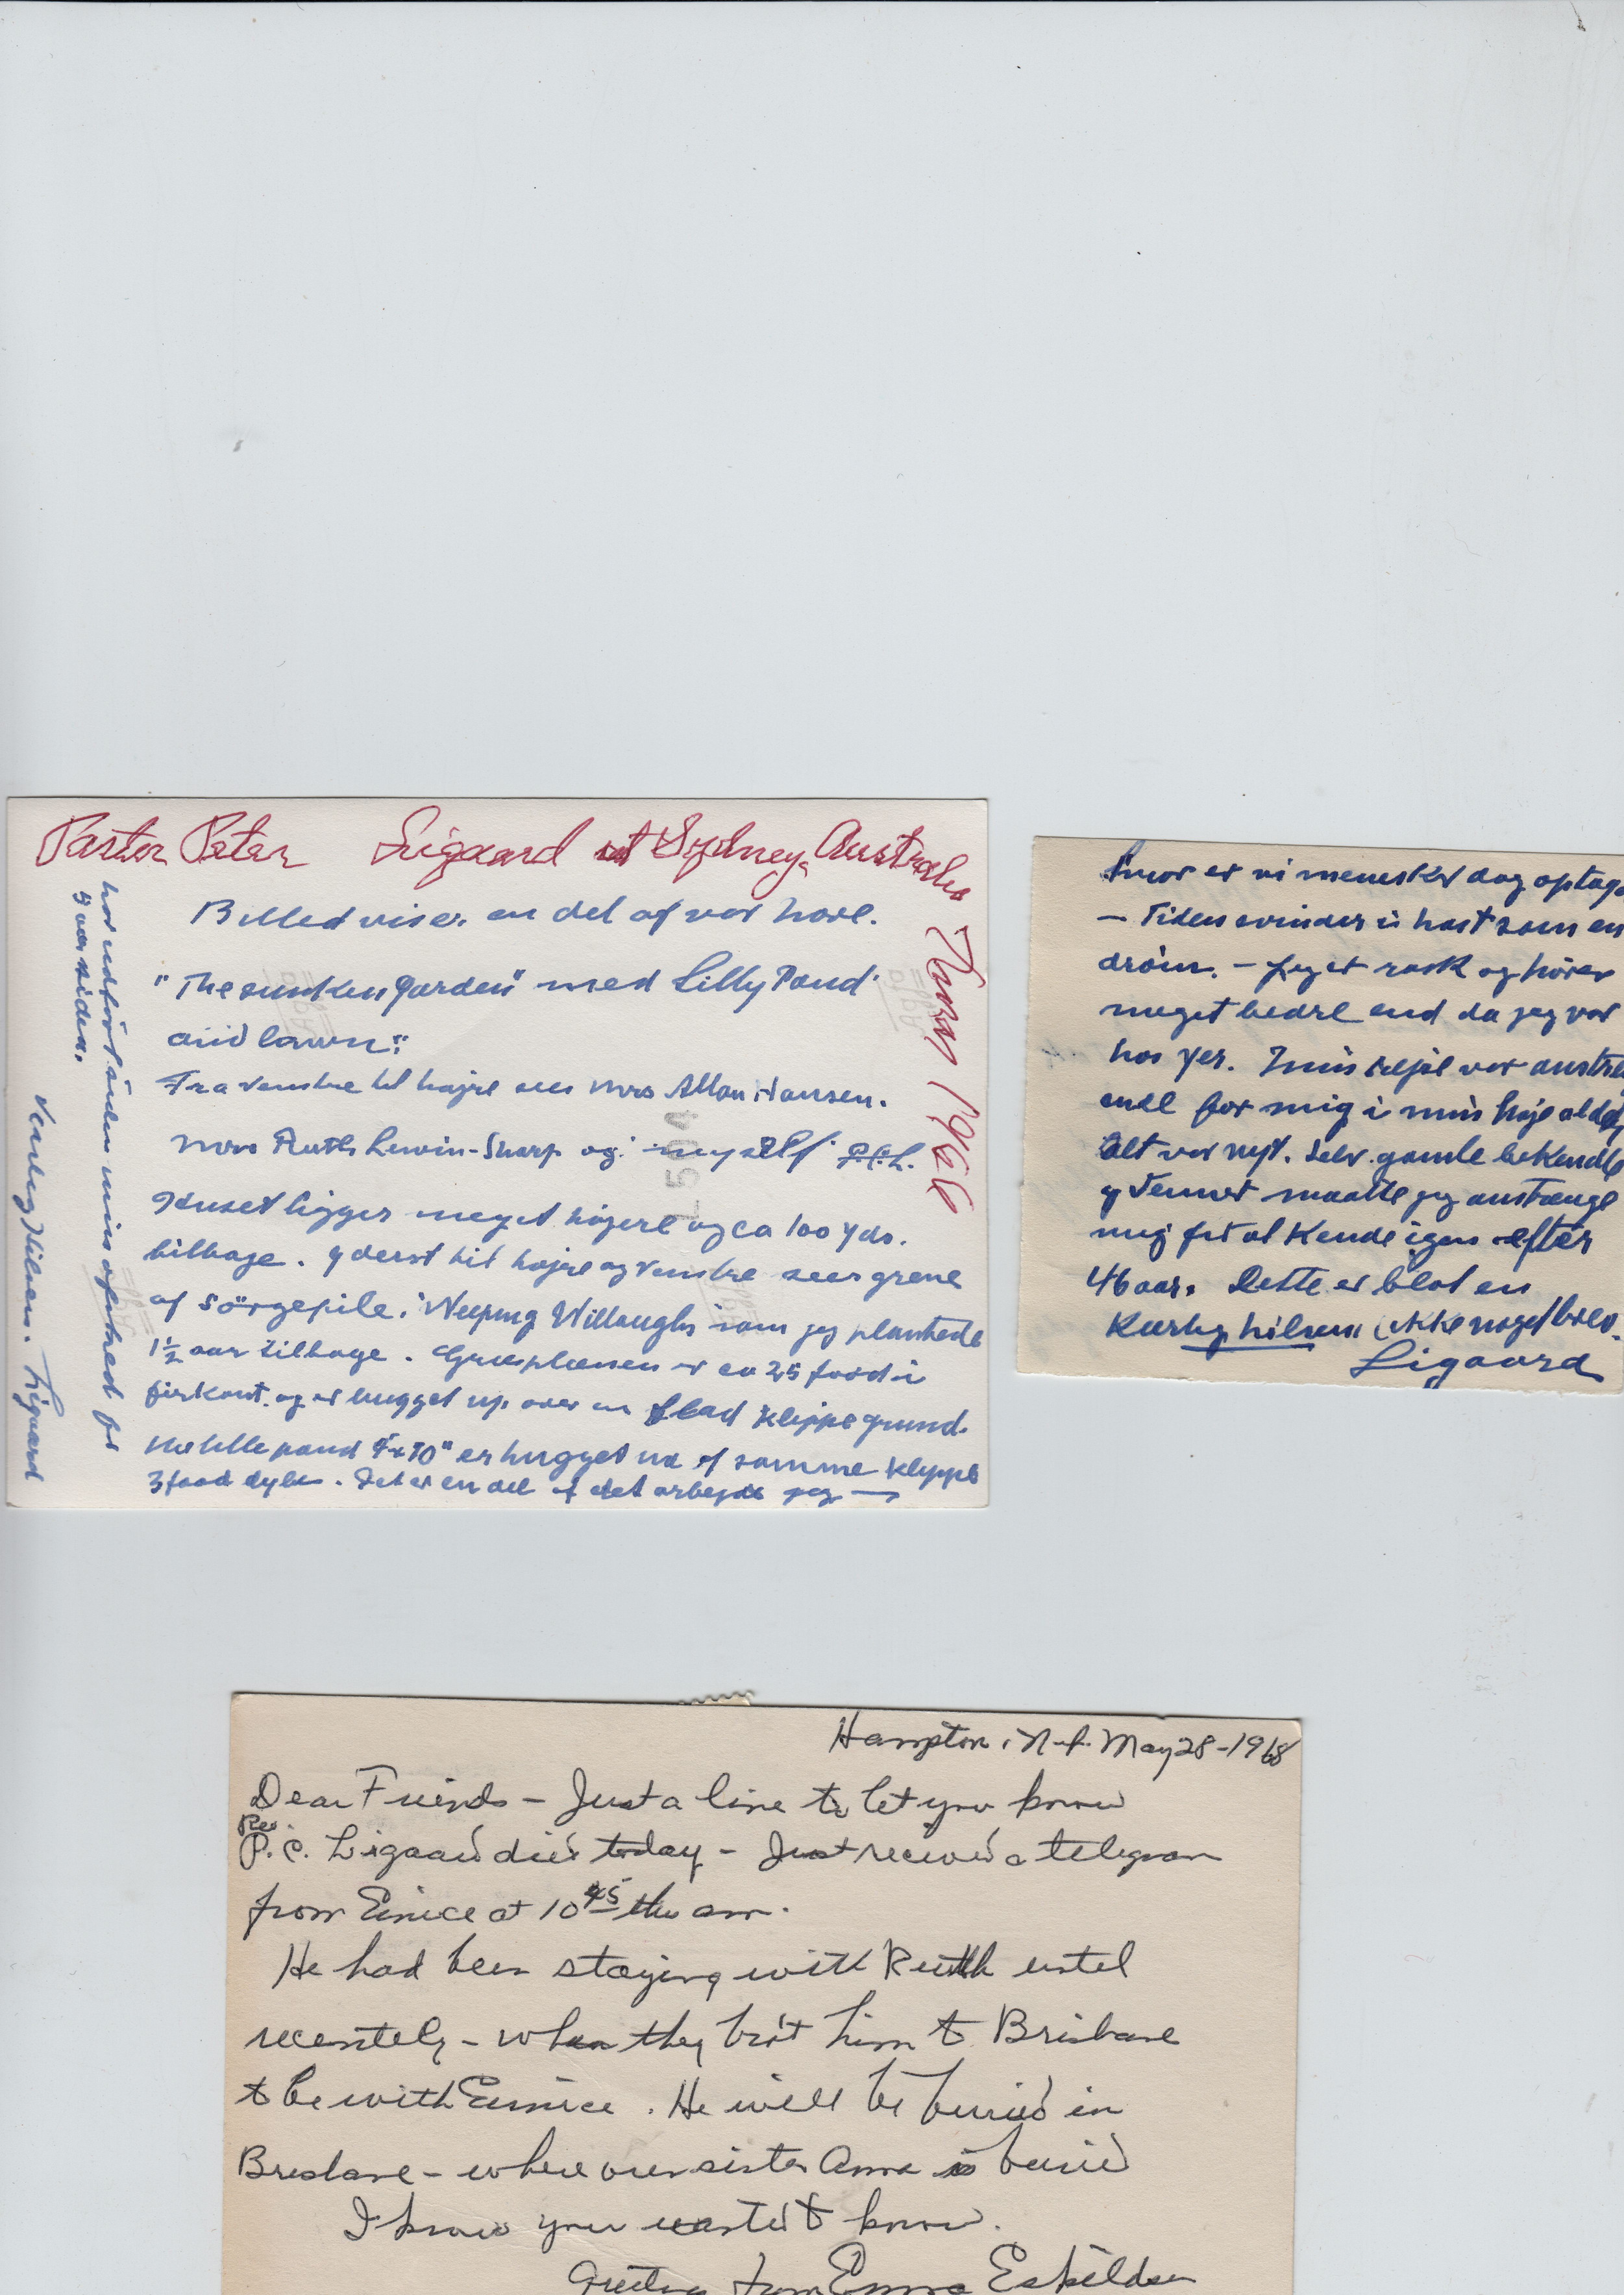 Pastor Peter Ligaard at Sydney, Australia
Billed viser en del af vor have.
"The sunken garden" med Lilly Pond
and lawn".
Fra venstre til højre sees Mrs Allan Hansen.
Mrs Ruth Lewin-Sharp og myself P.C.L.
Huset ligger meget højere og ca 100 yds.
tilbage. yderst til højre og venstre sees grene
af sörgepile. "Weeping Willoughs som jeg plantede
1½ aar tilbage. Græsplænen er ca 25 food i
firkant. og er bygget up over en flad klippegrund.
lille pond er hugget ud af samme klippe
3 food dyb. Det er en del af det arbejde jeg →
har udfört siden min
5 aar siden.
Venlig Hilsen. Ligaard
1504
Hvor er vi mennesker dog optage
— Tiden svinder i hast som en
dröm. — Jeg er rask og hörer
meget bedre end da jeg var
hos Jer. min rejse var anstre
ende for mig i min høje alder
Alt var nyt. Selv gamle bekendte
og Venner maatte jeg anstrænge
mig for at Kende igen efter
46 aar. Dette er blot en
Kærlig hilsen (ikke noget brev.
Ligaard
Hampton, May 28-1968
Dear Friends – Just a line to let you know
Rev
P.C. Ligaard died today – Just received a telegram
from Eunice at 10 45 this am.
He had been staying with Ruth until
recently – when they bro't him to Brisbane
to be with Eunice. He will be buried in
Brisbane – where our sister Anna is buried
I know you wanted to know.
Greetings from Emma Eskildsen